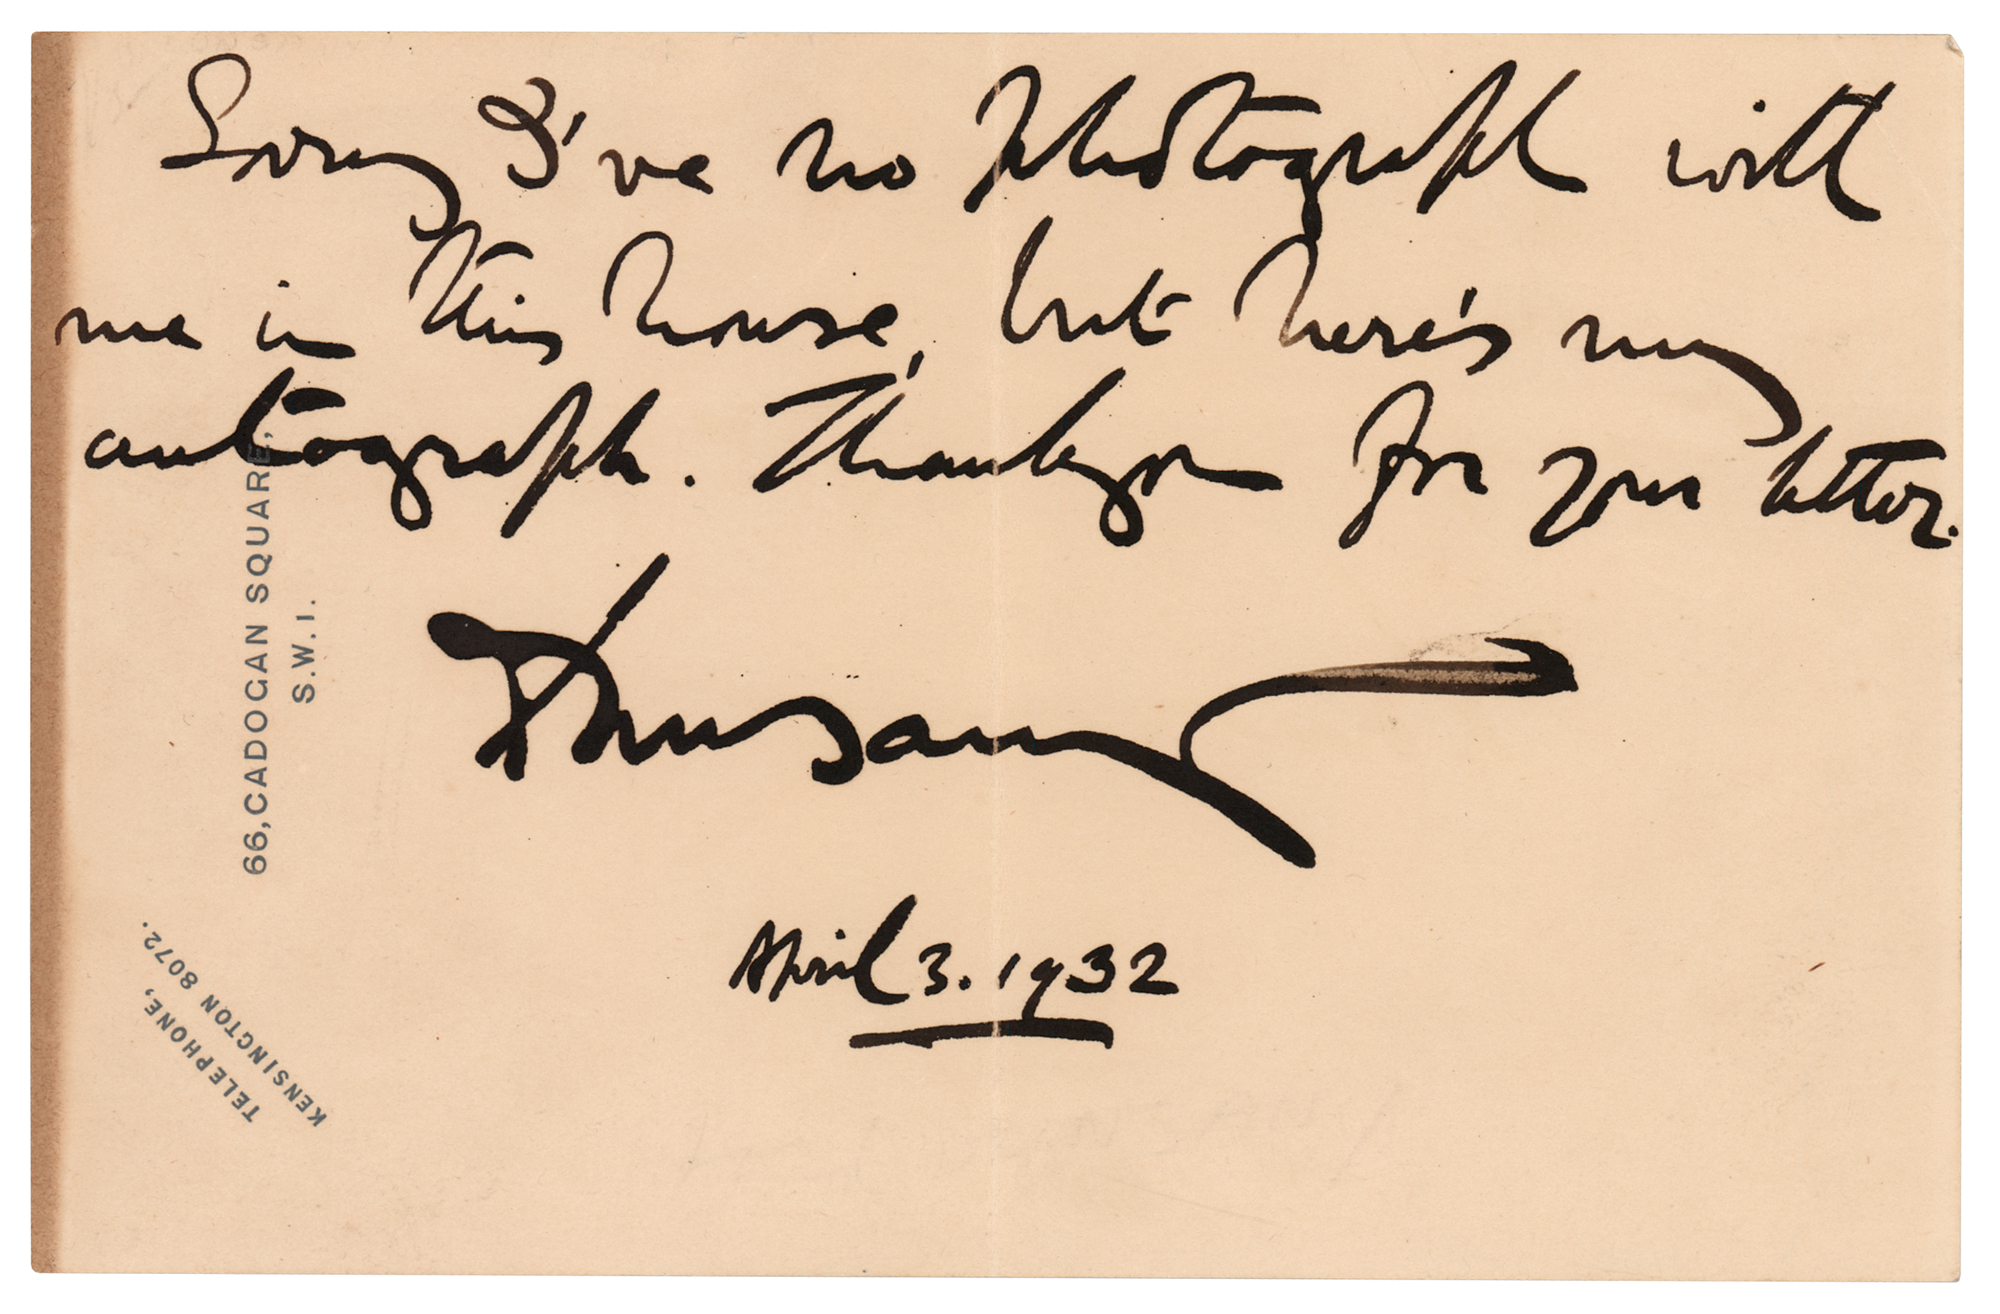 Sorry I've no photograph with
me in this house, but here's my
autograph. Thankyou for your letter.
Dunsany
April 3. 1932
66, CADOGAN SQUARE,
S.W.1.
TELEPHONE,
KENSINGTON 8072.